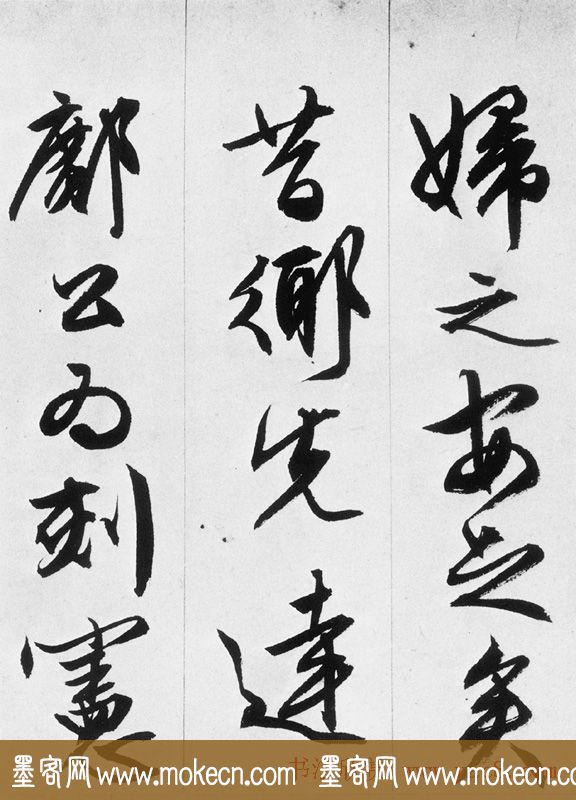 婦之安之矣
昔鄉先達
鄺公為刻憲
墨客网 www.mokecn.com 墨客网 www.mokecn.com